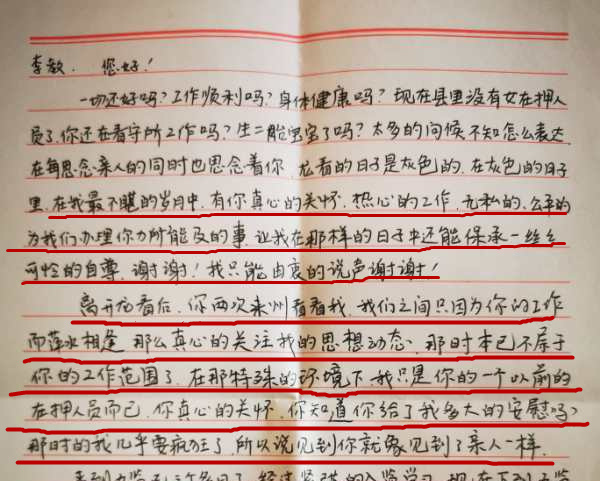 李教, 您好!
一切还好吗?工作顺利吗?身体健康吗?现在县里没有女在押人
员了,你还在看守所工作吗?生二胎宝宝了吗?太多的问候不知怎么表达
在每思念亲人的同时也思念着你,龙看的日子是灰色的,在灰色的日子
里,在我最不堪的岁月中,有你真心的关怀,热心的工作,无私的、公平的
为我们办理你力所能及的事,让我在那样的日子中还能保承一丝丝
可怜的自尊,谢谢!我只能由衷的说声谢谢!
离开龙看后,你两次来州看看我,我们之间只因为你的工作
而萍水相逢,那么真心的关注我的思想动态,那时本已不属于
你的工作范围了,在那特殊的环境下,我只是你的一个以前的
在押人员而已,你真心的关怀,你知道你给了我多大的安慰吗?
那时的我几乎要疯狂了,所以说见到你就象见到了亲人一样.